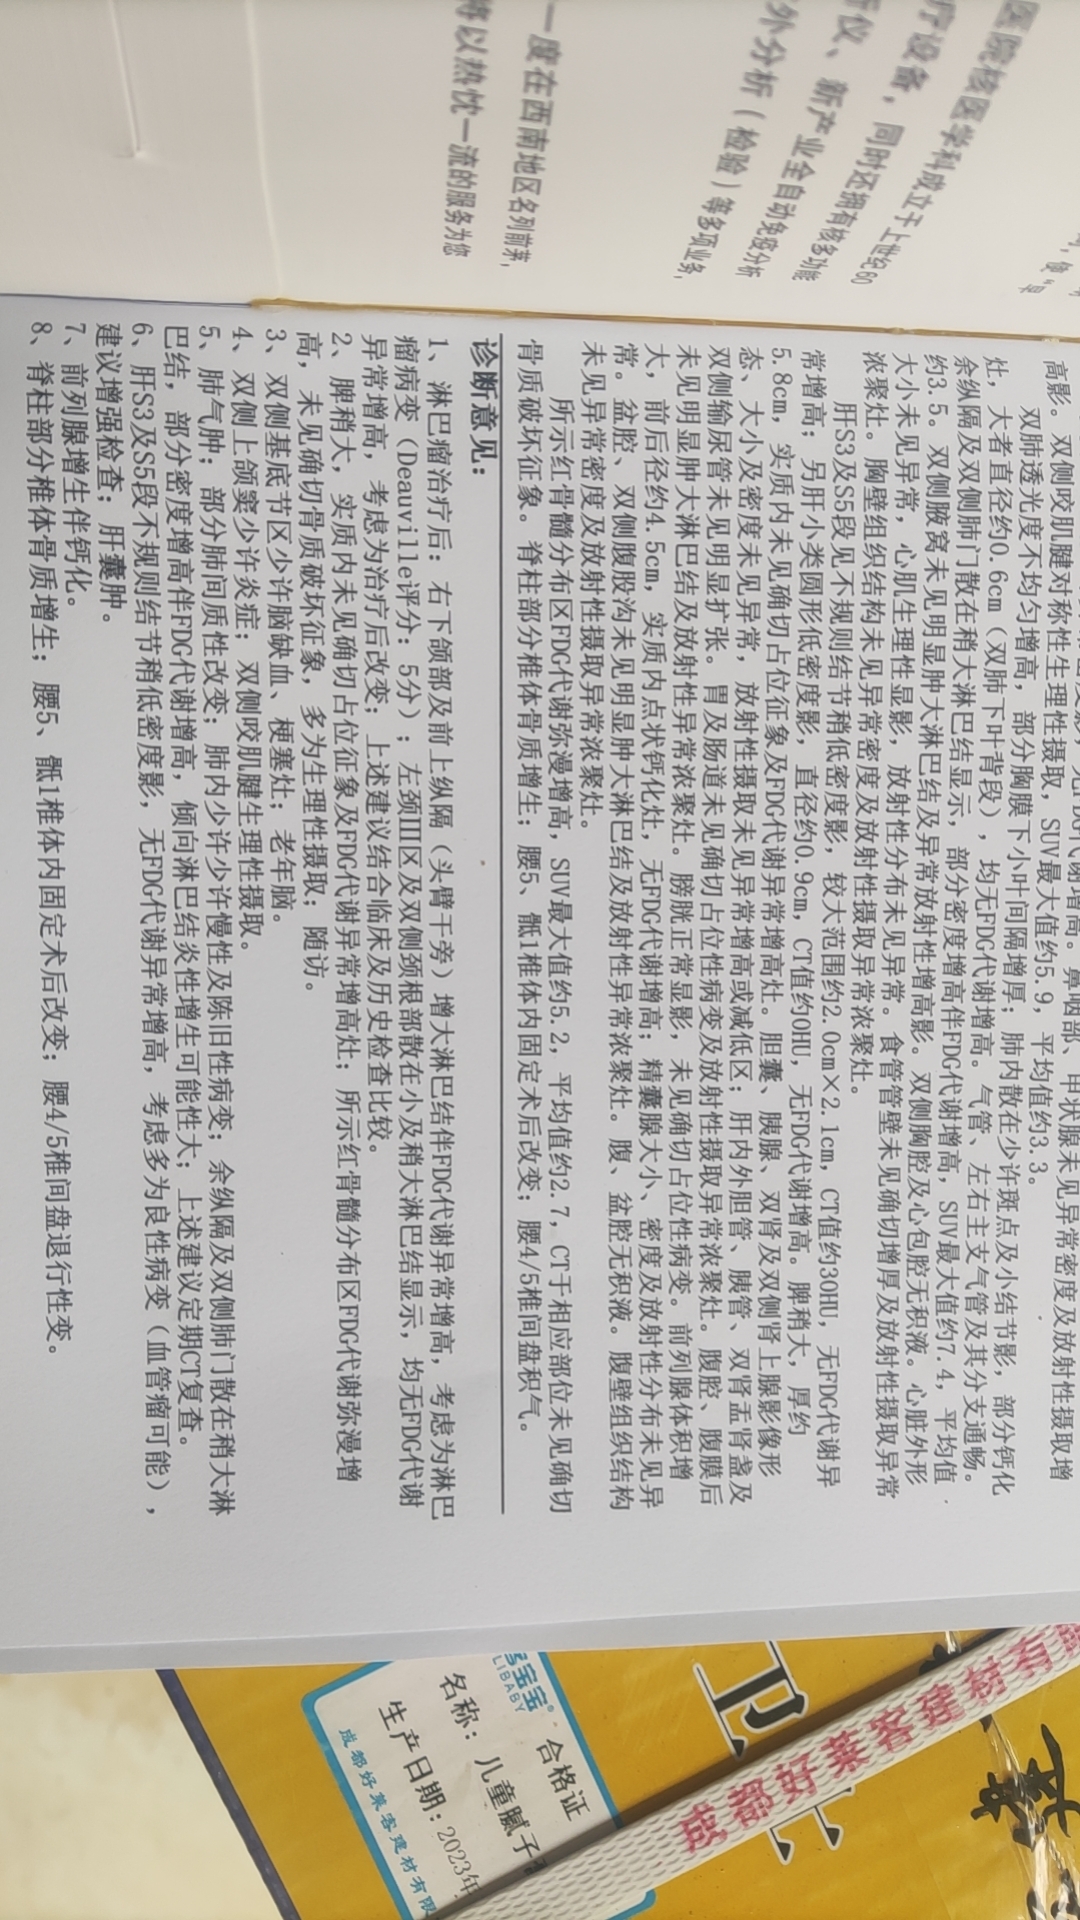 医院核医学科成立于上世纪60
疗设备，同时还拥有核多功能
析仪、新产业全自动免疫分析
外分析（检验）等多项业务，
一度在西南地区名列前茅，
将以热忱一流的服务为您
高影。双侧咬肌腱对称性生理性摄取，SUV最大值约5.9，平均值约3.3。
双肺透光度不均匀增高，部分胸膜下小叶间隔增厚；肺内散在少许斑点及小结节影，部分钙化
灶，大者直径约0.6cm（双肺下叶背段），均无FDG代谢增高。气管、左右主支气管及其分支通畅。
余纵隔及双侧肺门散在稍大淋巴结显示，部分密度增高伴FDG代谢增高，SUV最大值约7.4，平均值
约3.5。双侧腋窝未见明显肿大淋巴结及异常放射性增高影。双侧胸腔及心包腔无积液。心脏外形
大小未见异常，心肌生理性显影，放射性分布未见异常。食管管壁未见确切增厚及放射性摄取异常
浓聚灶。胸壁组织结构未见异常密度及放射性摄取异常浓聚灶。
肝S3及S5段见不规则结节稍低密度影，较大范围约2.0cm×2.1cm，CT值约30HU，无FDG代谢异
常增高；另肝小类圆形低密度影，直径约0.9cm，CT值约0HU，无FDG代谢增高。脾稍大，厚约
5.8cm，实质内未见确切占位征象及FDG代谢异常增高灶。胆囊、胰腺、双肾及双侧肾上腺影像形
态、大小及密度未见异常，放射性摄取未见异常增高或减低区；肝内外胆管、胰管、双肾盂肾盏及
双侧输尿管未见明显扩张。胃及肠道未见确切占位性病变及放射性摄取异常浓聚灶。腹腔、腹膜后
未见明显肿大淋巴结及放射性异常浓聚灶。膀胱正常显影，未见确切占位性病变。前列腺体积增
大，前后径约4.5cm，实质内点状钙化灶，无FDG代谢增高；精囊腺大小、密度及放射性分布未见异
常。盆腔、双侧腹股沟未见明显肿大淋巴结及放射性异常浓聚灶。腹、盆腔无积液。腹壁组织结构
未见异常密度及放射性摄取异常浓聚灶。
所示红骨髓分布区FDG代谢弥漫增高，SUV最大值约5.2，平均值约2.7，CT于相应部位未见确切
骨质破坏征象。脊柱部分椎体骨质增生；腰5、骶1椎体内固定术后改变；腰4/5椎间盘积气。
诊断意见：
1、淋巴瘤治疗后：右下颌部及前上纵隔（头臂干旁）增大淋巴结伴FDG代谢异常增高，考虑为淋巴
瘤病变（Deauville评分：5分）；左颈Ⅲ区及双侧颈根部散在小及稍大淋巴结显示，均无FDG代谢
异常增高，考虑为治疗后改变；上述建议结合临床及历史检查比较。
2、脾稍大，实质内未见确切占位征象及FDG代谢异常增高灶；所示红骨髓分布区FDG代谢弥漫增
高，未见确切骨质破坏征象，多为生理性摄取；随访。
3、双侧基底节区少许脑缺血、梗塞灶；老年脑。
4、双侧上颌窦少许炎症；双侧咬肌腱生理性摄取。
5、肺气肿；部分肺间质性改变；肺内少许少许慢性及陈旧性病变；余纵隔及双侧肺门散在稍大淋
巴结，部分密度增高伴FDG代谢增高，倾向淋巴结炎性增生可能性大；上述建议定期CT复查。
6、肝S3及S5段不规则结节稍低密度影，无FDG代谢异常增高，考虑多为良性病变（血管瘤可能），
建议增强检查；肝囊肿。
7、前列腺增生伴钙化。
8、脊柱部分椎体骨质增生；腰5、骶1椎体内固定术后改变；腰4/5椎间盘退行性变。
宝宝®
LIBABY
合格证
名称：儿童腻子
生产日期：2023年
成都好莱客建材有限
成都好莱客建材有